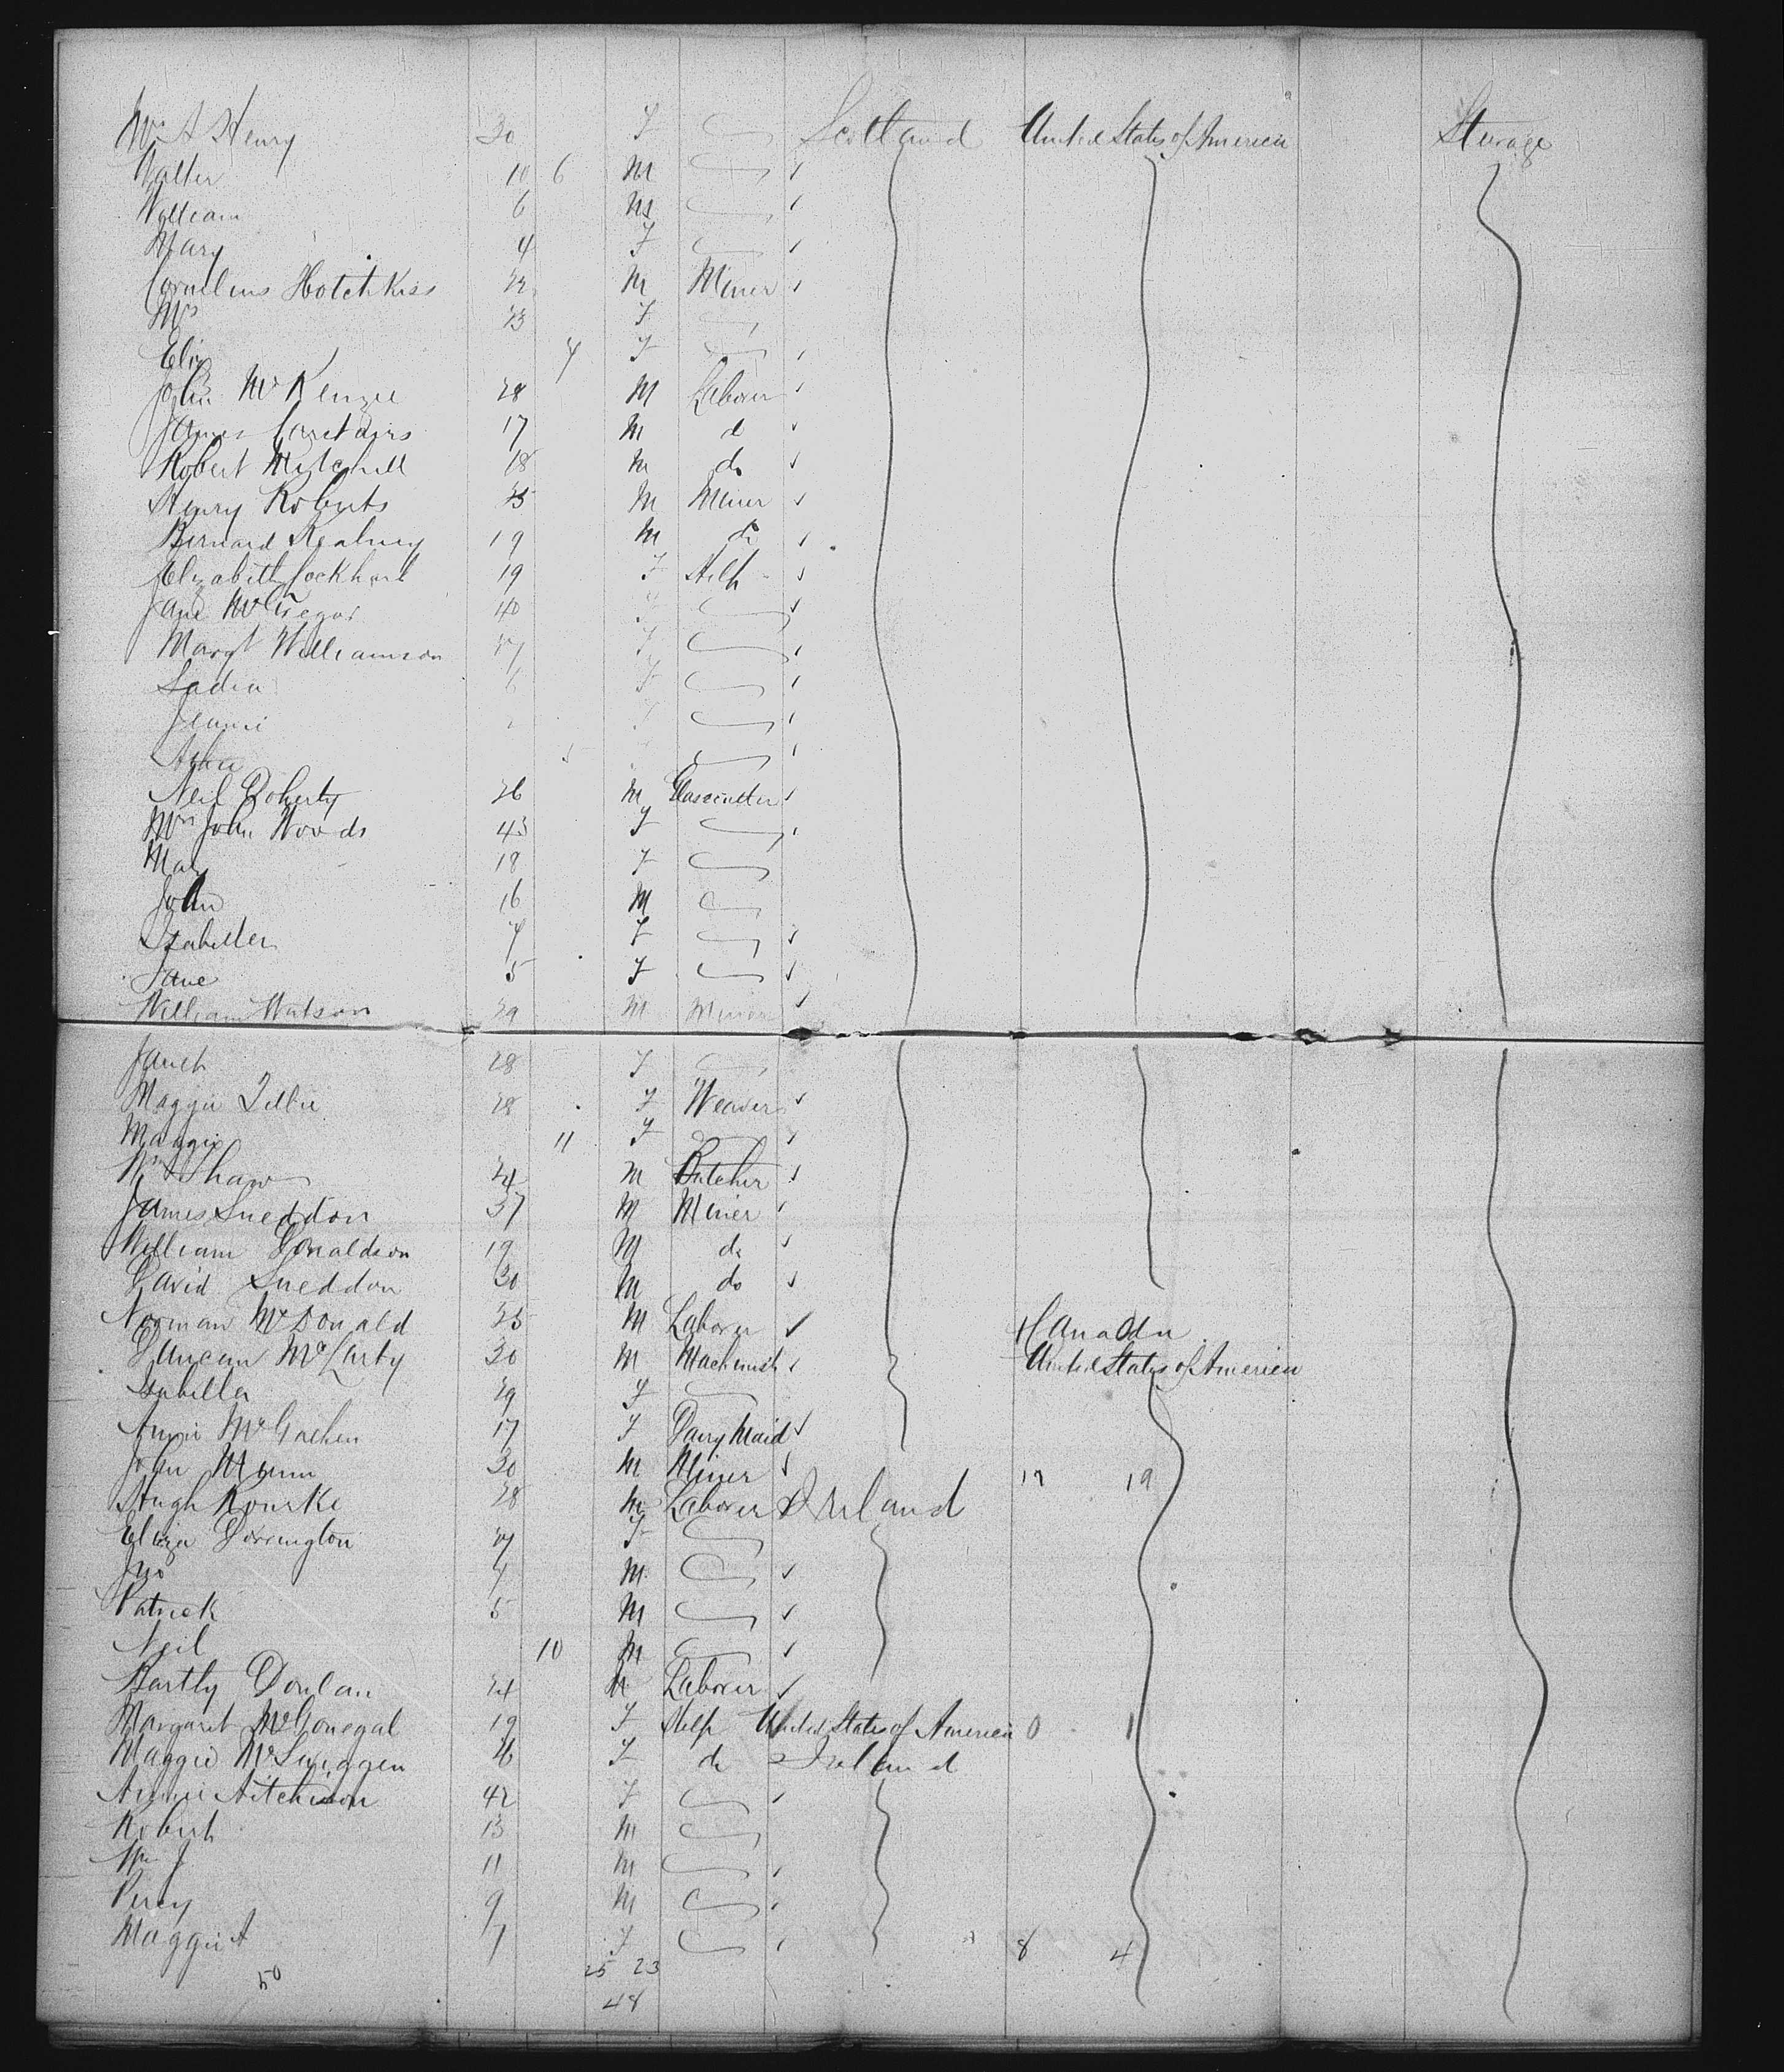 Mrs A Henry 30 F Scotland United States of America Sturage
Walter 10 6 M
William 6 M
Mary 4 F
Cornelius Hotchkiss 22 M Miner
Mrs 23 F
Eliz 4 F
John McKenzie 28 M Laborer
James Carstairs 17 M d
Robert Mitchell 18 M do
Henry Roberts 25 M Miner
Bernard 19 M do
Elizabeth Lockhart 19 F Help
Jane McGregor 40 F
Margt Williamson F
Sadia 6 F
Jeanie F
Neil Doherty 26 M Glasscutter
Mrs John Woods 43 F
Mary 18 F
John 16 M
Isabella 7 F
Jane 5 F
William Watson 29 M Miner
Janet 28 F
Maggie 28 F Weaver
Maggie 11 F
Wm Shaw 24 M Butcher
James Sneddon 37 M Miner
William Donaldson 19 M do
David Sneddon 30 M do
Norman McDonald 25 M Laborer Canada
Duncan McCarty 30 M Machinist United States of America
Isabella 29 F
Annie 17 F Dairy Maid
John Munn 30 M Miner 19
Hugh Rourke 28 M Laborer Ireland
Eliza Dorrington 27 F
Jno 7 M
Patrick 5 M
Neil 10 M
Bartly Donlan 24 M Laborer
Margaret McGonegal 19 F Help United States of America 0 1
Maggie McSwiggen 26 F do Ireland
Annie Aitchison 42 F
Robert 13 M
Wm J 11 M
Percy 9 M
Maggie A 7 F 8 4
50 25 23
48